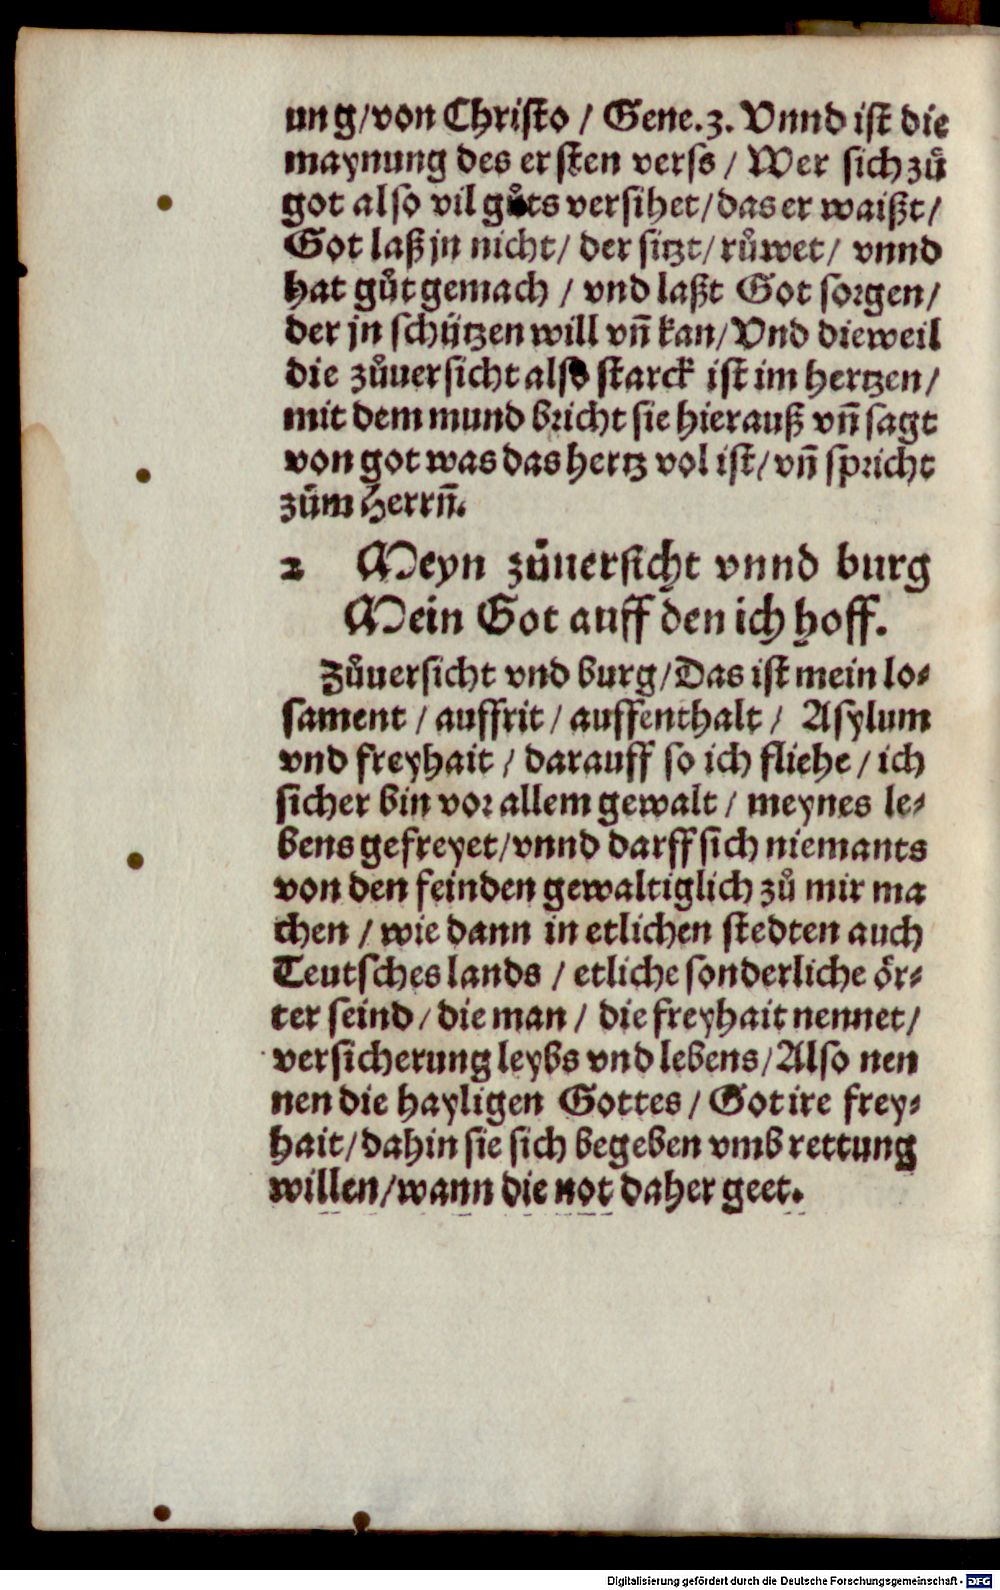 ung/von Christo / Gene.3. Vnnd ist die
maynung des ersten verss / Wer sich zů
got also vil gůts versihet/das er waißt/
Got laß jn nicht/ der sitzt/růwet/ vnnd
hat gůt gemach / vnd laßt Got sorgen/
der jn schützen will vñ kan/Vnd dieweil
die zůuersicht also starck ist im hertzen/
mit dem mund bricht sie hierauß vñ sagt
von got was das hertz vol ist/vñ spricht
zům Herrñ.
2 Meyn zůuersicht vnnd burg
Mein Got auff den ich hoff.
Zůuersicht vnd burg/Das ist mein lo⸗
sament / auffrit / auffenthalt / Asylum
vnd freyhait / darauff so ich fliehe / ich
sicher bin vor allem gewalt / meynes le⸗
bens gefreyet/vnnd darff sich niemants
von den feinden gewaltiglich zů mir ma
chen / wie dann in etlichen stedten auch
Teutsches lands / etliche sonderliche ör⸗
ter seind / die man / die freyhait nennet/
versicherung leybs vnd lebens/Also nen
nen die hayligen Gottes / Got ire frey⸗
hait/dahin sie sich begeben vmb rettung
willen/wann die not daher geet.
Digitalisierung gefördert durch die Deutsche Forschungsgemeinschaft - DFG